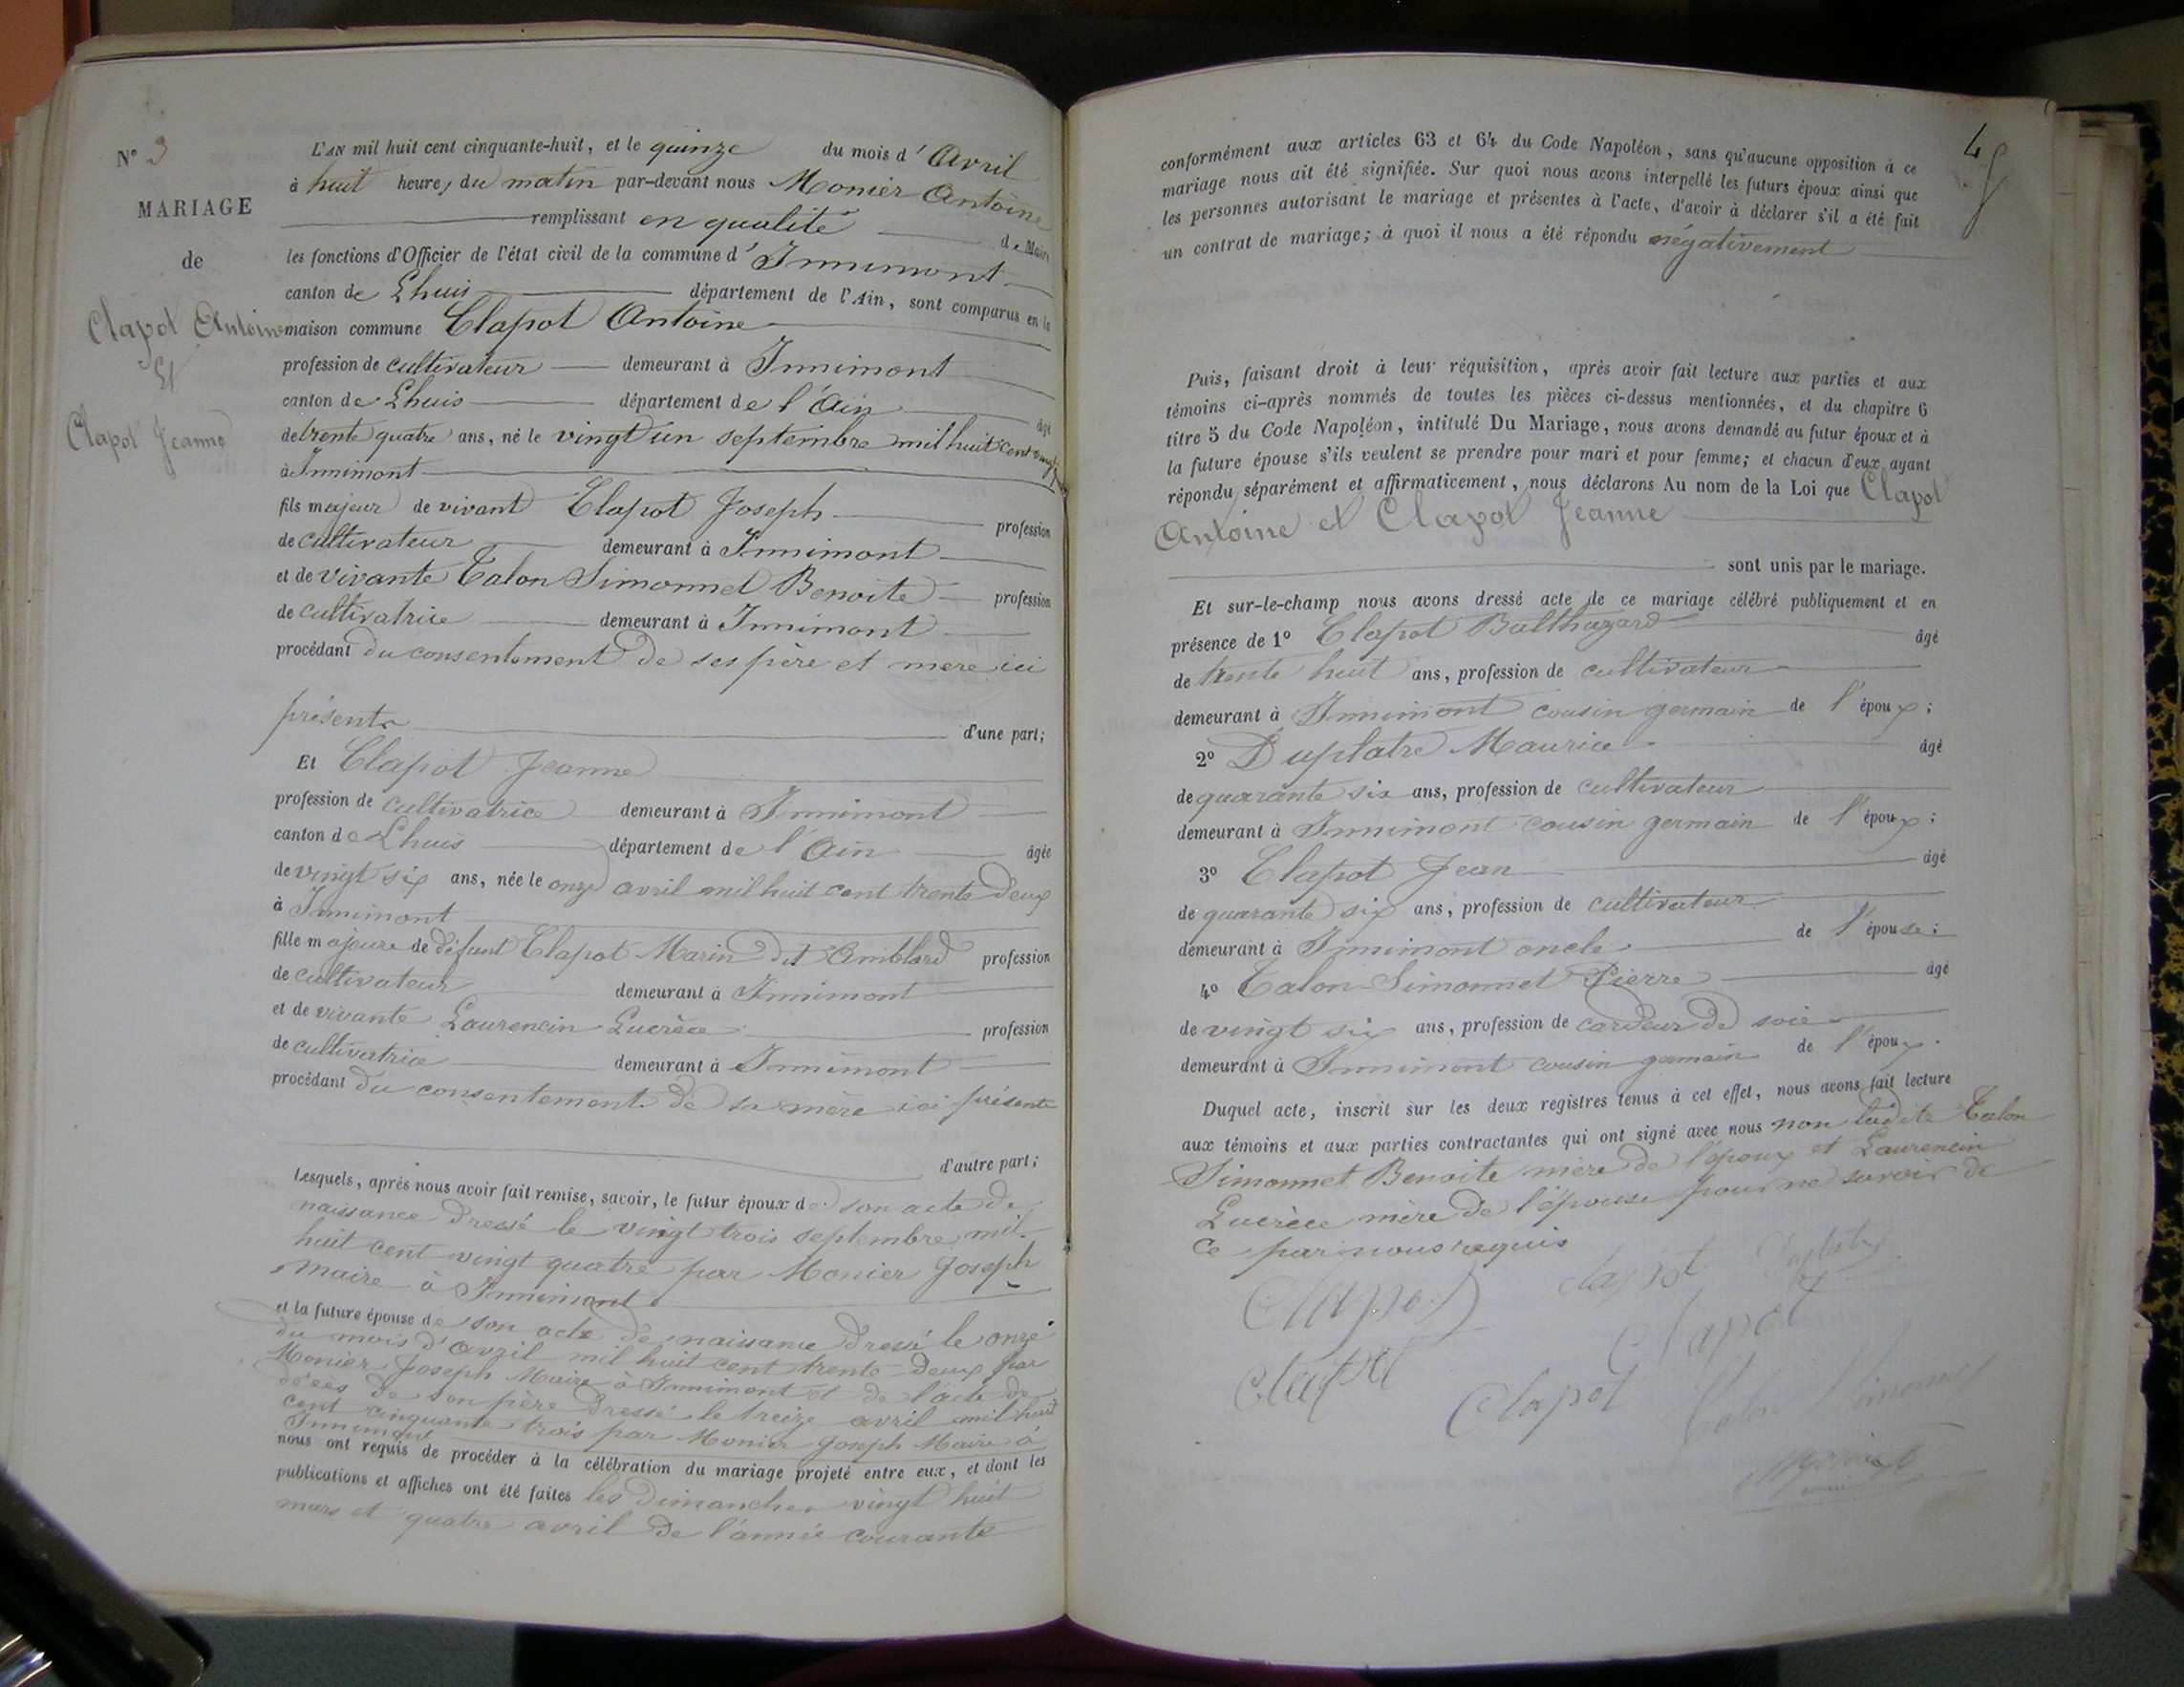 N° 3
MARIAGE
de
Clapot Antoine
Et
Clapot Jeanne
L'AN mil huit cent cinquante-huit, et le quinze du mois d'Avril
à huit heures du matin par-devant nous Monier Antoine
remplissant en qualité de Maire
les fonctions d'Officier de l'état civil de la commune d'Innimont
canton de Lhuis département de l'Ain, sont comparus en la
maison commune Clapot Antoine
profession de cultivateur demeurant à Innimont
canton de Lhuis département de l'Ain âgé
de trente quatre ans, né le vingt un septembre mil huit cent vingt
à Innimont
fils majeur de vivant Clapot Joseph profession
de cultivateur demeurant à Innimont
et de vivante Talon Simonnet Benoite profession
de cultivatrice demeurant à Innimont
procédant du consentement de ses père et mere ici
présents d'une part;
Et Clapot Jeanne
profession de cultivatrice demeurant à Innimont
canton de Lhuis département de l'Ain âgée
de vingt six ans, née le onze avril mil huit cent trente deux
à Innimont
fille majeure de défunt Clapot Marin dit Amblard profession
de cultivateur demeurant à Innimont
et de vivante Laurencin Lucrèce profession
de cultivatrice demeurant à Innimont
procédant du consentement de sa mère ici présente
d'autre part;
Lesquels, après nous avoir fait remise, savoir, le futur époux de son acte de
naissance dressé le vingt trois septembre mil
huit cent vingt quatre par Monier Joseph
maire à Innimont
et la future épouse de son acte de naissance dressé le onze
du mois d'avril mil huit cent trente deux par
Monier Joseph Maire à Innimont et de l'acte de
décès de son père dressé le treize avril mil huit
cent cinquante trois par Monier Joseph Maire à
Innimont
nous ont requis de procéder à la célébration du mariage projeté entre eux, et dont les
publications et affiches ont été faites les dimanches vingt huit
mars et quatre avril de l'année courante
4
conformément aux articles 63 et 64 du Code Napoléon, sans qu'aucune opposition à ce
mariage nous ait été signifiée. Sur quoi nous avons interpellé les futurs époux ainsi que
les personnes autorisant le mariage et présentes à l'acte, d'avoir à déclarer s'il a été fait
un contrat de mariage; à quoi il nous a été répondu négativement
Puis, faisant droit à leur réquisition, après avoir fait lecture aux parties et aux
témoins ci-après nommés de toutes les pièces ci-dessus mentionnées, et du chapitre 6
titre 5 du Code Napoléon, intitulé Du Mariage, nous avons demandé au futur époux et à
la future épouse s'ils veulent se prendre pour mari et pour femme; et chacun d'eux ayant
répondu séparément et affirmativement, nous déclarons Au nom de la Loi que Clapot
Antoine et Clapot Jeanne
sont unis par le mariage.
Et sur-le-champ nous avons dressé acte de ce mariage célébré publiquement et en
présence de 1° Clapot Balthazard âgé
de trente huit ans, profession de cultivateur
demeurant à Innimont cousin germain de l'époux;
2° Duplatre Maurice âgé
de quarante six ans, profession de cultivateur
demeurant à Innimont cousin germain de l'époux;
3° Clapot Jean âgé
de quarante six ans, profession de cultivateur
demeurant à Innimont oncle de l'épouse;
4° Talon Simonnet Pierre âgé
de vingt six ans, profession de cardeur de soie
demeurant à Innimont cousin germain de l'époux.
Duquel acte, inscrit sur les deux registres tenus à cet effet, nous avons fait lecture
aux témoins et aux parties contractantes qui ont signé avec nous non ladite Talon
Simonnet Benoite mère de l'époux et Laurencin
Lucrèce mère de l'épouse pour ne savoir de
ce par nous requis
Clapot clapot Duplatre
Clapot
Clapot
Clapot Talon Simonnet
Monier